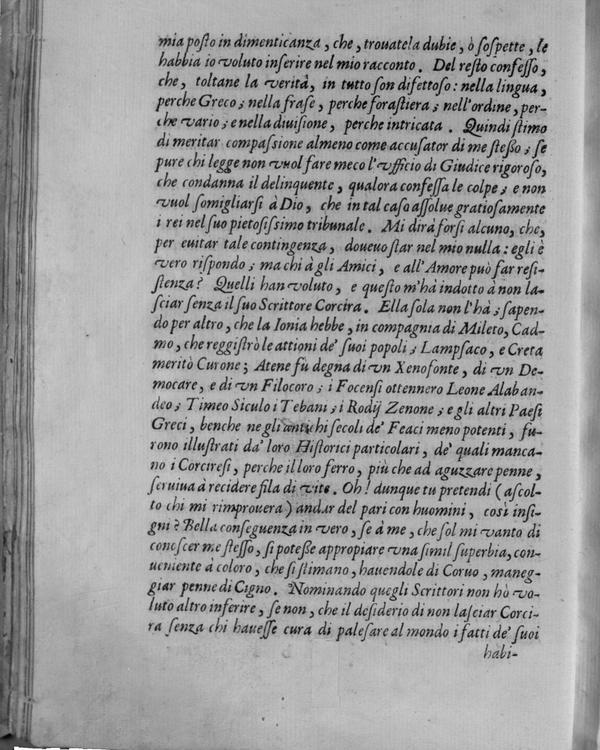 mia posto in dimenticanza, che, trouatela dubie, ò sospette, le
habbia io voluto inserire nel mio racconto. Del resto confesso,
che, toltane la verità, in tutto son difettoso: nella lingua,
perche Greco; nella frase, perche forastiera; nell'ordine, per-
che vario; e nella diuisione, perche intricata. Quindi stimo
di meritar compassione almeno come accusator di me stesso; se
pure chi legge non vuol fare meco l'vfficio di Giudice rigoroso,
che condanna il delinquente, qualora confessa le colpe; e non
vuol somigliarsi à Dio, che in tal caso assolue gratiosamente
i rei nel suo pietosissimo tribunale. Mi dirà forsi alcuno, che,
per euitar tale contingenza, doueuo star nel mio nulla: egli è
vero rispondo; ma chi à gli Amici, e all'Amore può far resi-
stenza? Quelli han voluto, e questo m'hà indotto à non la-
sciar senza il suo Scrittore Corcira. Ella sola non l'hà; sapen-
do per altro, che la Ionia hebbe, in compagnia di Mileto, Cad-
mo, che reggistrò le attioni de' suoi popoli; Lampsaco, e Creta
meritò Curone; Atene fù degna di vn Xenofonte, di vn De-
mocare, e di vn Filocoro; i Focensi ottennero Leone Alaban-
deo; Timeo Siculo i Tebani; i Rodij Zenone; e gli altri Paesi
Greci, benche ne gli antichi secoli de' Feaci meno potenti, fu-
rono illustrati da' loro Historici particolari, de' quali manca-
no i Corciresi, perche il loro ferro, più che ad aguzzare penne,
seruiua à recidere fila di vite. Oh! dunque tu pretendi (ascol-
to chi mi rimprouera) andar del pari con huomini, così insi-
gni? Bella conseguenza in vero, se à me, che sol mi vanto di
conoscer me stesso, si potesse appropiare vna simil superbia, con-
ueniente à coloro, che si stimano, hauendole di Coruo, maneg-
giar penne di Cigno. Nominando quegli Scrittori non hò vo-
luto altro inferire, se non, che il desiderio di non lasciar Corci-
ra senza chi hauesse cura di palesare al mondo i fatti de' suoi
habi-